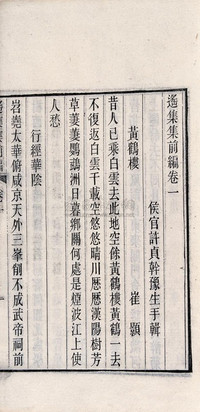 逸集集前編卷一
侯官許貞幹豫生手輯
黃鶴樓　崔顥
昔人已乘白雲去此地空餘黃鶴樓黃鶴一去
不復返白雲千載空悠悠晴川歷歷漢陽樹芳
草萋萋鸚鵡洲日暮鄉關何處是煙波江上使
人愁
行經華陰
岧嶤太華俯咸京天外三峯削不成武帝祠前